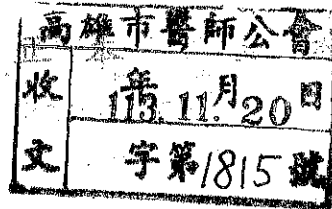 高雄市醫師公會
收文
113年11月20日
字第1815號